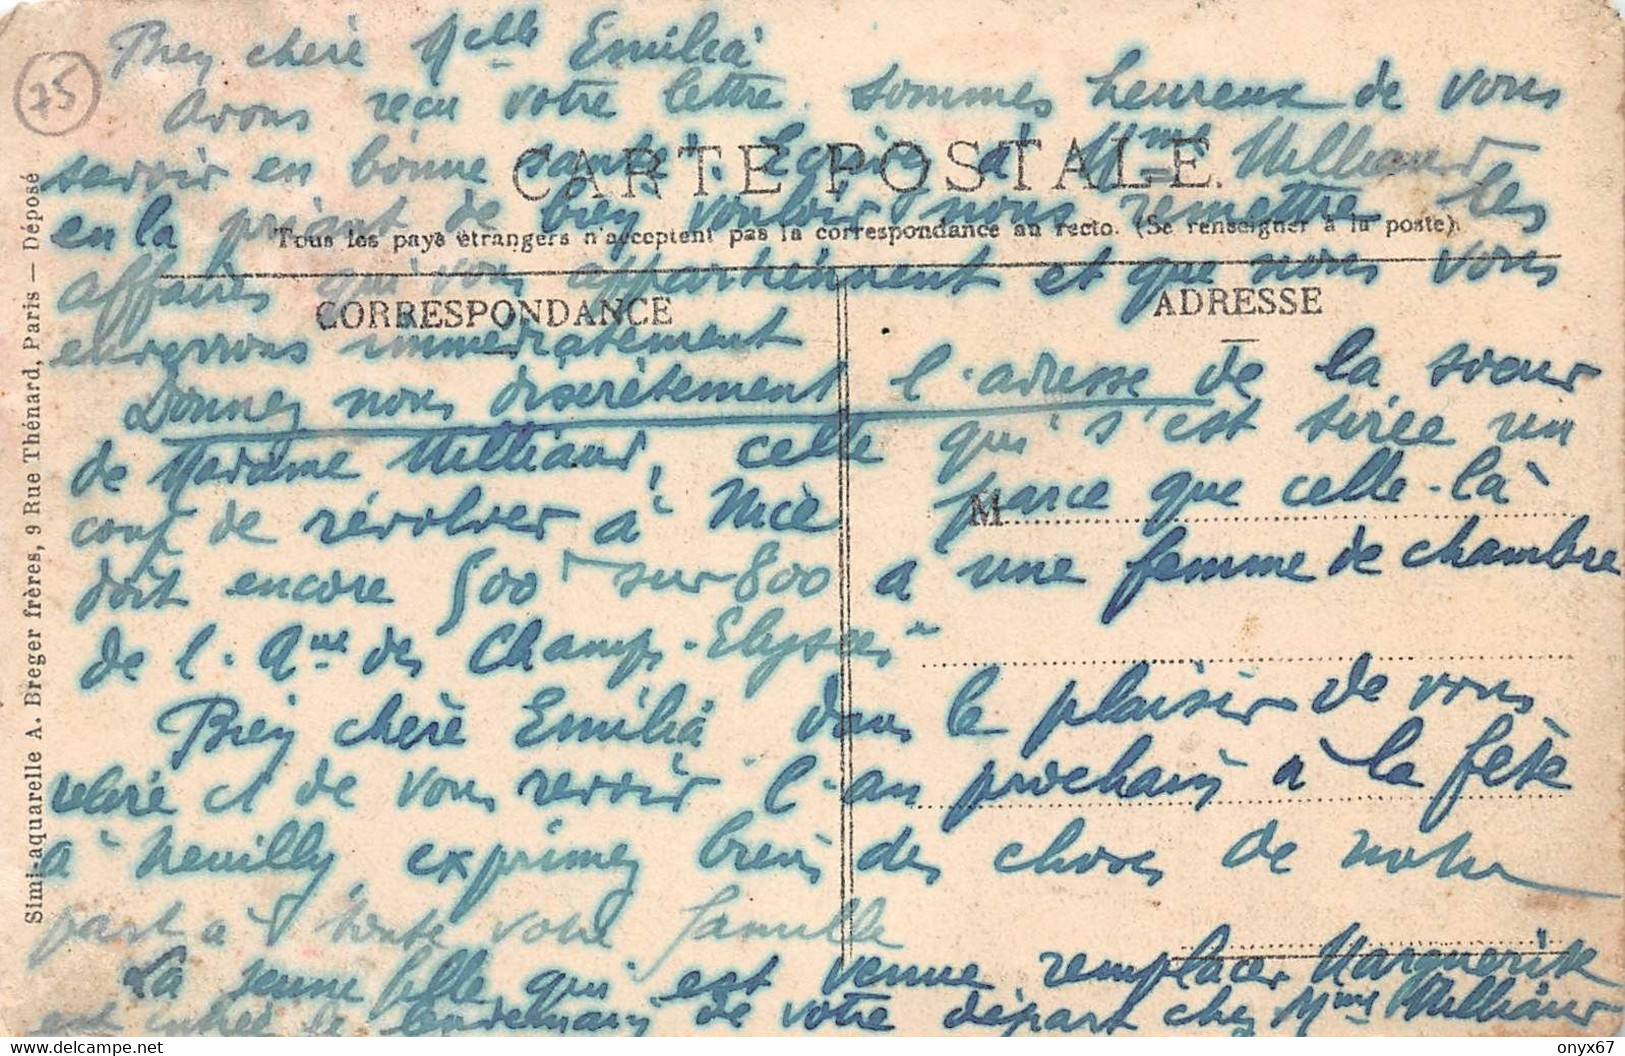 75
Bien chère Melle Emilia
Avons reçu votre lettre. Sommes heureux de vous
savoir en bonne santé. Ecrire à Mme Milliaud
CARTE POSTALE.
en la priant de bien vouloir nous remettre les
Tous les pays étrangers n'acceptent pas la correspondance au recto. (Se renseigner à la poste).
affaires qui vous appartiennent et que nous vous
CORRESPONDANCE
ADRESSE
enverrons immédiatement
Donnez nous discrètement l'adresse de la soeur
de Madame Milliaud, celle qui s'est tirée un
coup de révolver à Nice parce que celle-là
M
doit encore 500 sur 800 à une femme de chambre
de l'Ave des Champs-Elysées
Bien chère Emilia dans le plaisir de vous
relire et de vous revoir l'an prochain à la fête
à Neuilly, exprimez bien des choses de notre
part à toute votre famille
La jeune fille qui est venue remplacer Marguerite
est entrée le lendemain de votre départ chez Mme Milliaud
Simi-aquarelle A. Breger frères, 9 Rue Thénard, Paris — Déposé
onyx67